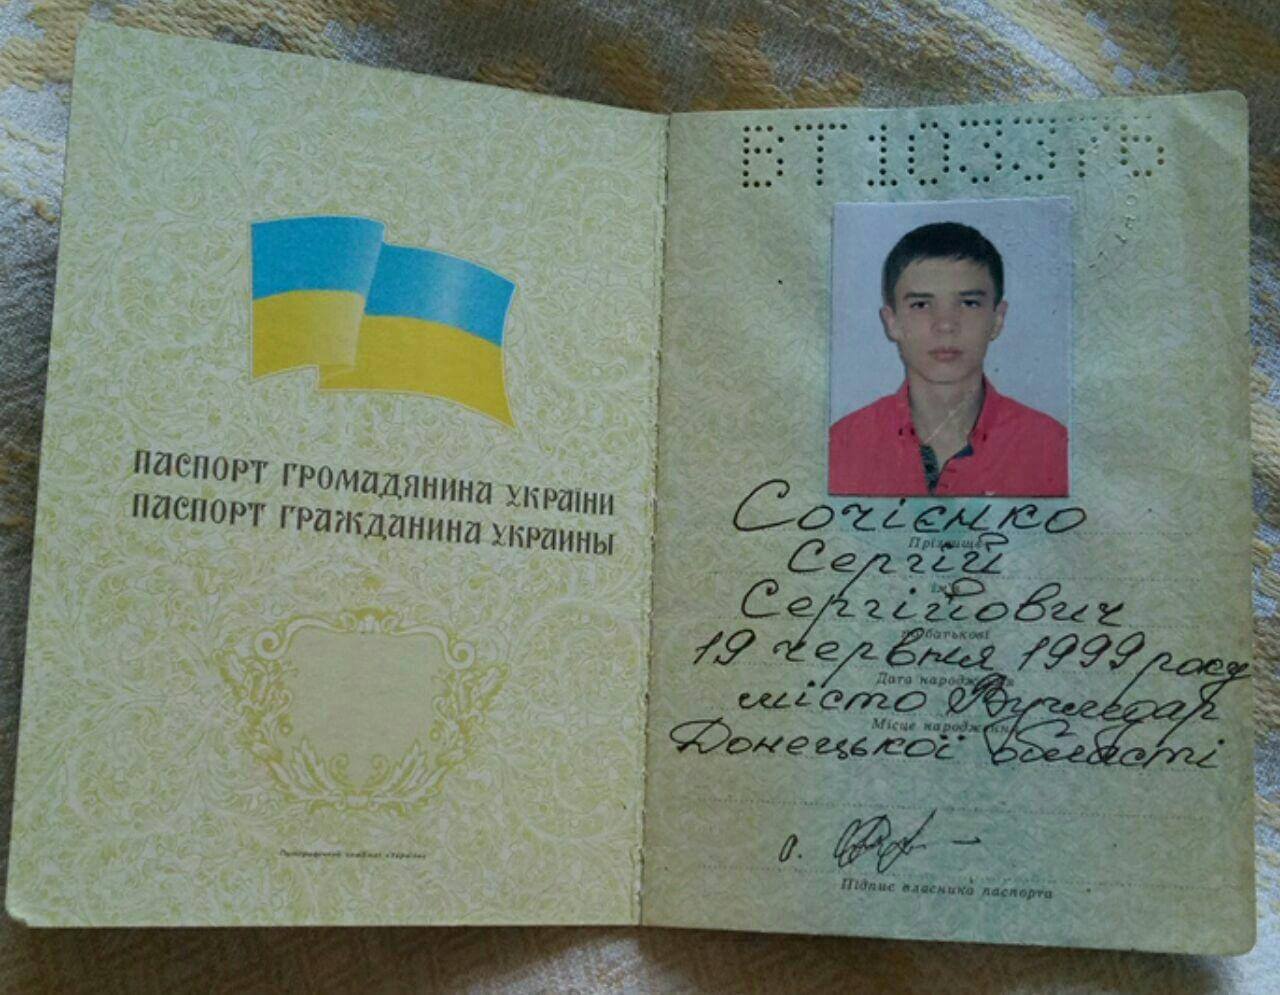 ПАСПОРТ ГРОМАДЯНИНА УКРАЇНИ
ПАСПОРТ ГРАЖДАНИНА УКРАИНЫ
Поліграфічний комбінат «Україна»
ВТ103376
Сочієнко
Прізвище
Сергій
Ім'я
Сергійович
по батькові
19 червня 1999 року
Дата народження
місто Вугледар
Місце народження
Донецької області
Підпис власника паспорта